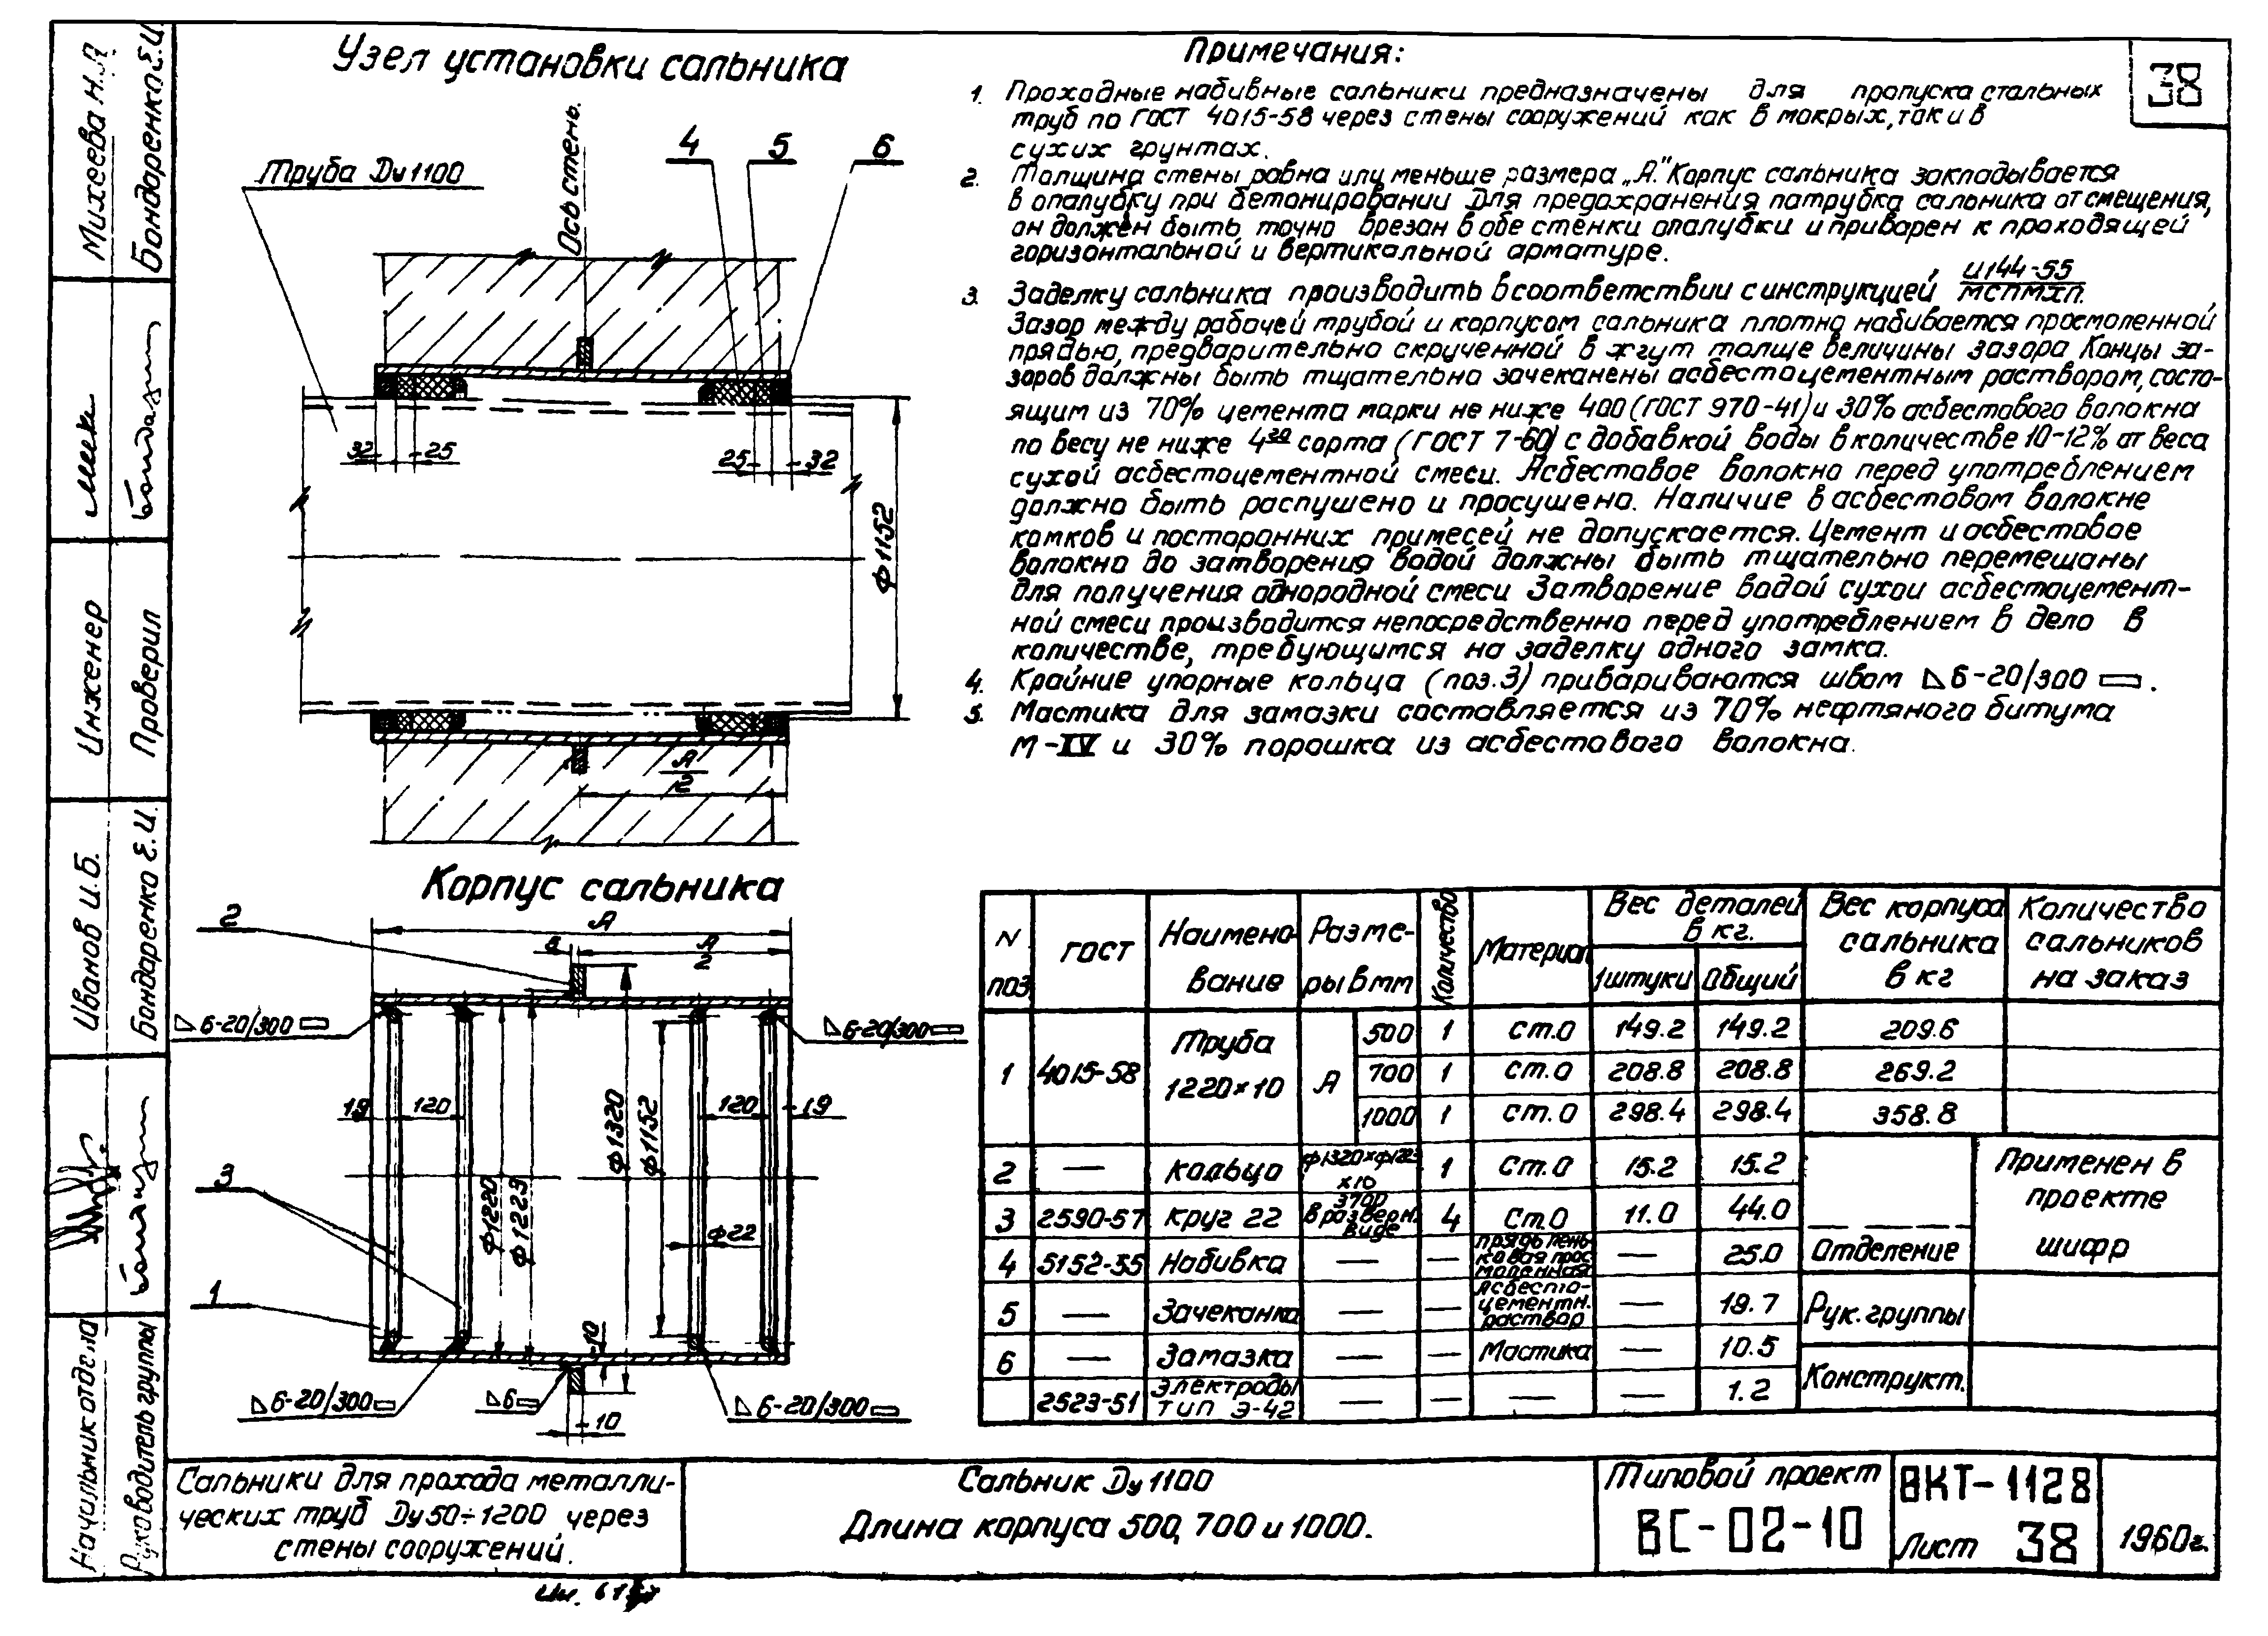 38
Узел установки сальника
Труба Dу 1100
Ось стены.
4
5
6
32
25
25
32
ф1152
А/2
Примечания:
1. Проходные набивные сальники предназначены для пропуска стальных
труб по ГОСТ 4015-58 через стены сооружений как в мокрых, так и в
сухих грунтах.
2. Толщина стены равна или меньше размера „А." Корпус сальника закладывается
в опалубку при бетонировании Для предохранения патрубка сальника от смещения,
он должен быть точно врезан в обе стенки опалубки и приварен к проходящей
горизонтальной и вертикальной арматуре.
3. Заделку сальника производить в соответствии с инструкцией, И144-55/МСПМХП.
Зазор между рабочей трубой и корпусом сальника плотно набивается просмоленной
прядью, предварительно скрученной в жгут толще величины зазора Концы за-
зоров должны быть тщательно зачеканены асбестоцементным раствором, состо-
ящим из 70% цемента марки не ниже 400 (ГОСТ 970-41) и 30% асбестового волокна
по весу не ниже 4го сорта (ГОСТ 7-60) с добавкой воды в количестве 10-12% от веса
сухой асбестоцементной смеси. Асбестовое волокно перед употреблением
должно быть распушено и просушено. Наличие в асбестовом волокне
комков и посторонних примесей не допускается. Цемент и асбестовое
волокно до затворения водой должны быть тщательно перемешаны
для получения однородной смеси Затворение водой сухой асбестоцемент-
ной смеси производится непосредственно перед употреблением в дело в
количестве, требующимся на заделку одного замка.
4. Крайние упорные кольца (поз.3) привариваются швом ⊿6-20/300 ▭.
5. Мастика для замазки составляется из 70% нефтяного битума
М-IV и 30% порошка из асбестового волокна.
Корпус сальника
2
А
А/2
⊿6-20/300 ▭
⊿6-20/300 ▭
19
120
120
19
ф1220
ф1223
ф1320
ф1152
ф22
3
1
10
⊿6-20/300 ▭
⊿6 ▭
⊿6-20/300 ▭
10
N поз | ГОСТ | Наимено-вание | Разме-ры в мм | Количество | Материал | Вес деталей в кг. 1 штуки | Общий | Вес корпуса сальника в кг | Количество сальников на заказ
1 | 4015-58 | Труба 1220×10 | А | 500 | 1 | ст.0 | 149.2 | 149.2 | 209.6
700 | 1 | ст.0 | 208.8 | 208.8 | 269.2
1000 | 1 | ст.0 | 298.4 | 298.4 | 358.8
2 | — | кольцо | ф1320×ф1223 ×10 | 1 | Ст.0 | 15.2 | 15.2
3 | 2590-57 | круг 22 | 3700 в разверн. виде | 4 | Ст.0 | 11.0 | 44.0
4 | 5152-55 | Набивка | — | — | прядь пень-ковая прос-моленная | — | 25.0
5 | — | Зачеканка | — | — | Асбесто-цементн. раствор | — | 19.7
6 | — | Замазка | — | — | Мастика | — | 10.5
2523-51 | Электроды тип Э-42 | — | — | — | — | 1.2
Отделение
Рук. группы
Конструкт.
Применен в
проекте
шифр
Начальник отдела
Иванов И.Б.
Инженер
Михеева Н.А
Руководитель группы
Бондаренко Е.И.
Проверил
Бондаренко Е.И.
Сальники для прохода металли-
ческих труб Dу 50÷1200 через
стены сооружений.
Сальник Dу 1100
Длина корпуса 500, 700 и 1000.
Типовой проект
ВС-02-10
ВКТ-1128
Лист 38
1960г.